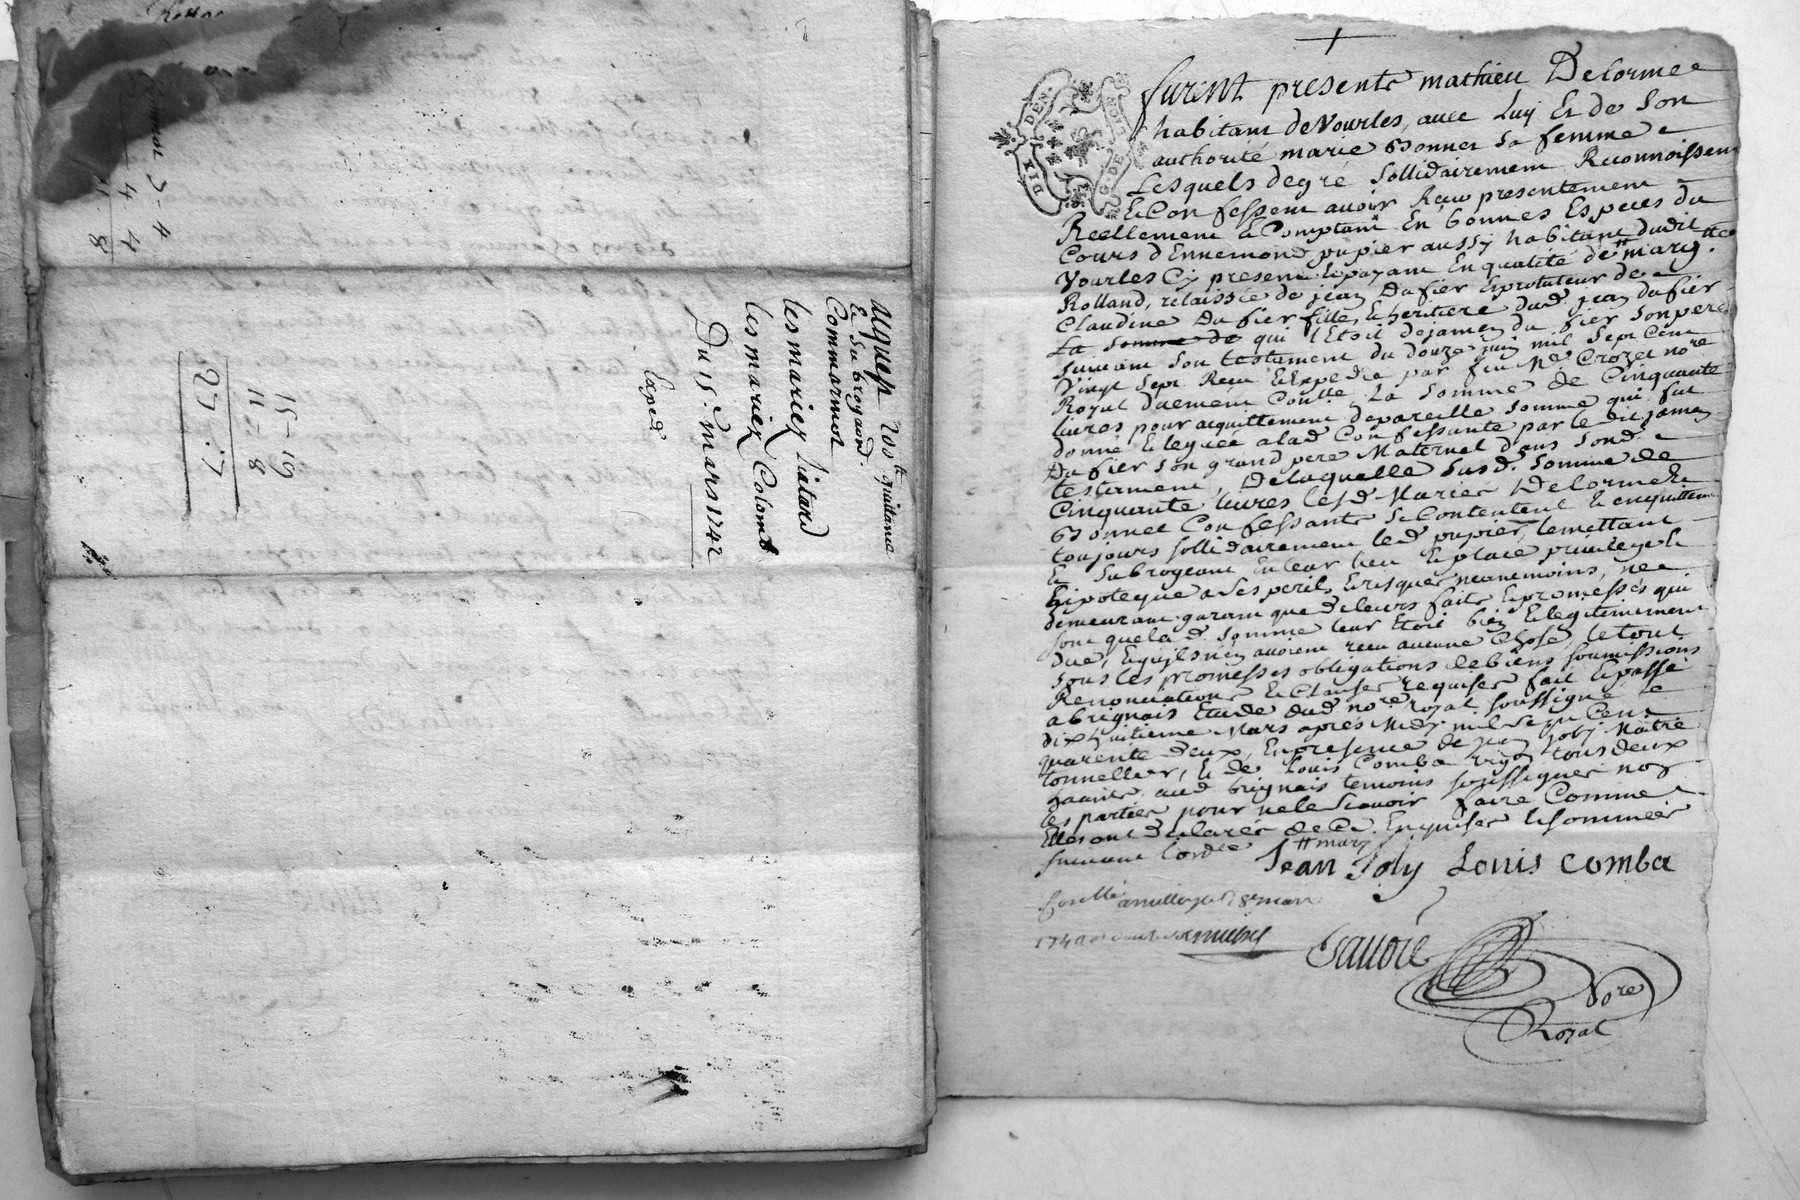 acquisᵒⁿ 20ˢ quittance
Et Subrogaon.
Commarmot
les mariez Liatard
les mariez Colomb
Du 15. mars 1742
Exped
15-19
11-8
27.7
3-4
4
8
DIX DEN.
G. DE LION
furent presents mathieu Delorme
habitant de Vourles, avec Luy Et de Son
authorité marie Bonnet Sa femme
Lesquels degré Sollidairement Reconnoissent
Et Confessent avoir Reçu presentement
Reellement Et Comptant En bonnes Especes du
Cours d'Ennemond pupier aussy habitant dudit
Vourles Cy present Et payant En qualité de mary
Rolland, relaissée de jean Dufier Et protuteur de
Claudine Dufier fille Et heritiere dud. jean dufier
La Somme de qui l'Etoit dejamen du fier Son pere
Suivant Son testament du douze juin mil Sept Cent
Vingt Sept Receu Et Expedié par feu Me Crozet nore
Royal duement Contlle La Somme de Cinquante
livres pour acquittement de pareille Somme qui fut
donné Et leguée alad. Confessante par le dit jamen
Dufier Son grand pere Maternel dans Sond.
testament, De laquelle Susd. Somme de
Cinquante livres lesd. Mariez Delorme Et
Bonnet Confessants Se Contentent Et en quittent
toujours Sollidairement led. pupier, le mettant
Et Subrogeant En leur lieu Et place privilege Et
hipoteque a Ses perils Et risques neanmoins, ne
demeurant garant que de leurs faits Et promesses qui
sont que lad. Somme leur Etoit bien Et legitimement
due, Et qu'ils n'en avoient receu aucune Chose, le tout
Sous les promesses obligations de biens Soumissions
Renonciations Et Clauses requises fait Et passé
a brignais Etude dud. nore royal Soussigné le
dix huitieme Mars apres Midy mil Sept Cent
quarente deux, En presence de jean joly Maitre
tonnellier, Et de Louis Comba tous deux
habitants aud. brignais temoins soussignez non
les parties pour ne le Scavoir faire Comme
Elles ont declarés de Ce Enquises Et Sommées
Suivant l'ordce
Jean Joly Louis comba
18e mars
Nore
Royal